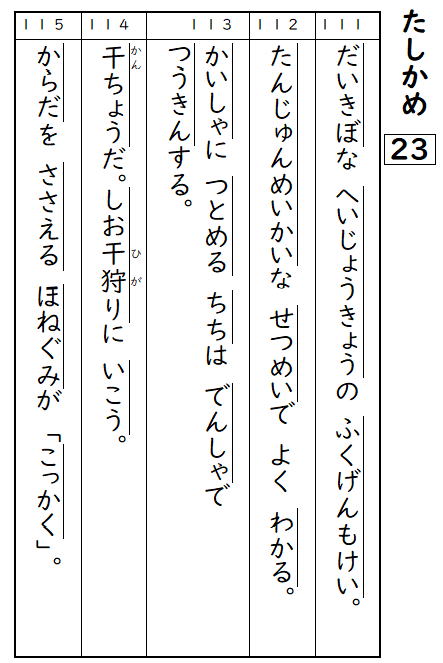 たしかめ
23
111
だいきぼな へいじょうきょうの ふくげんもけい。
112
たんじゅんめいかいな せつめいで よく わかる。
113
かいしゃに つとめる ちちは でんしゃで
つうきんする。
114
干ちょうだ。しお干狩りに いこう。
かん
ひ が
115
からだを ささえる ほねぐみが 「こっかく」。